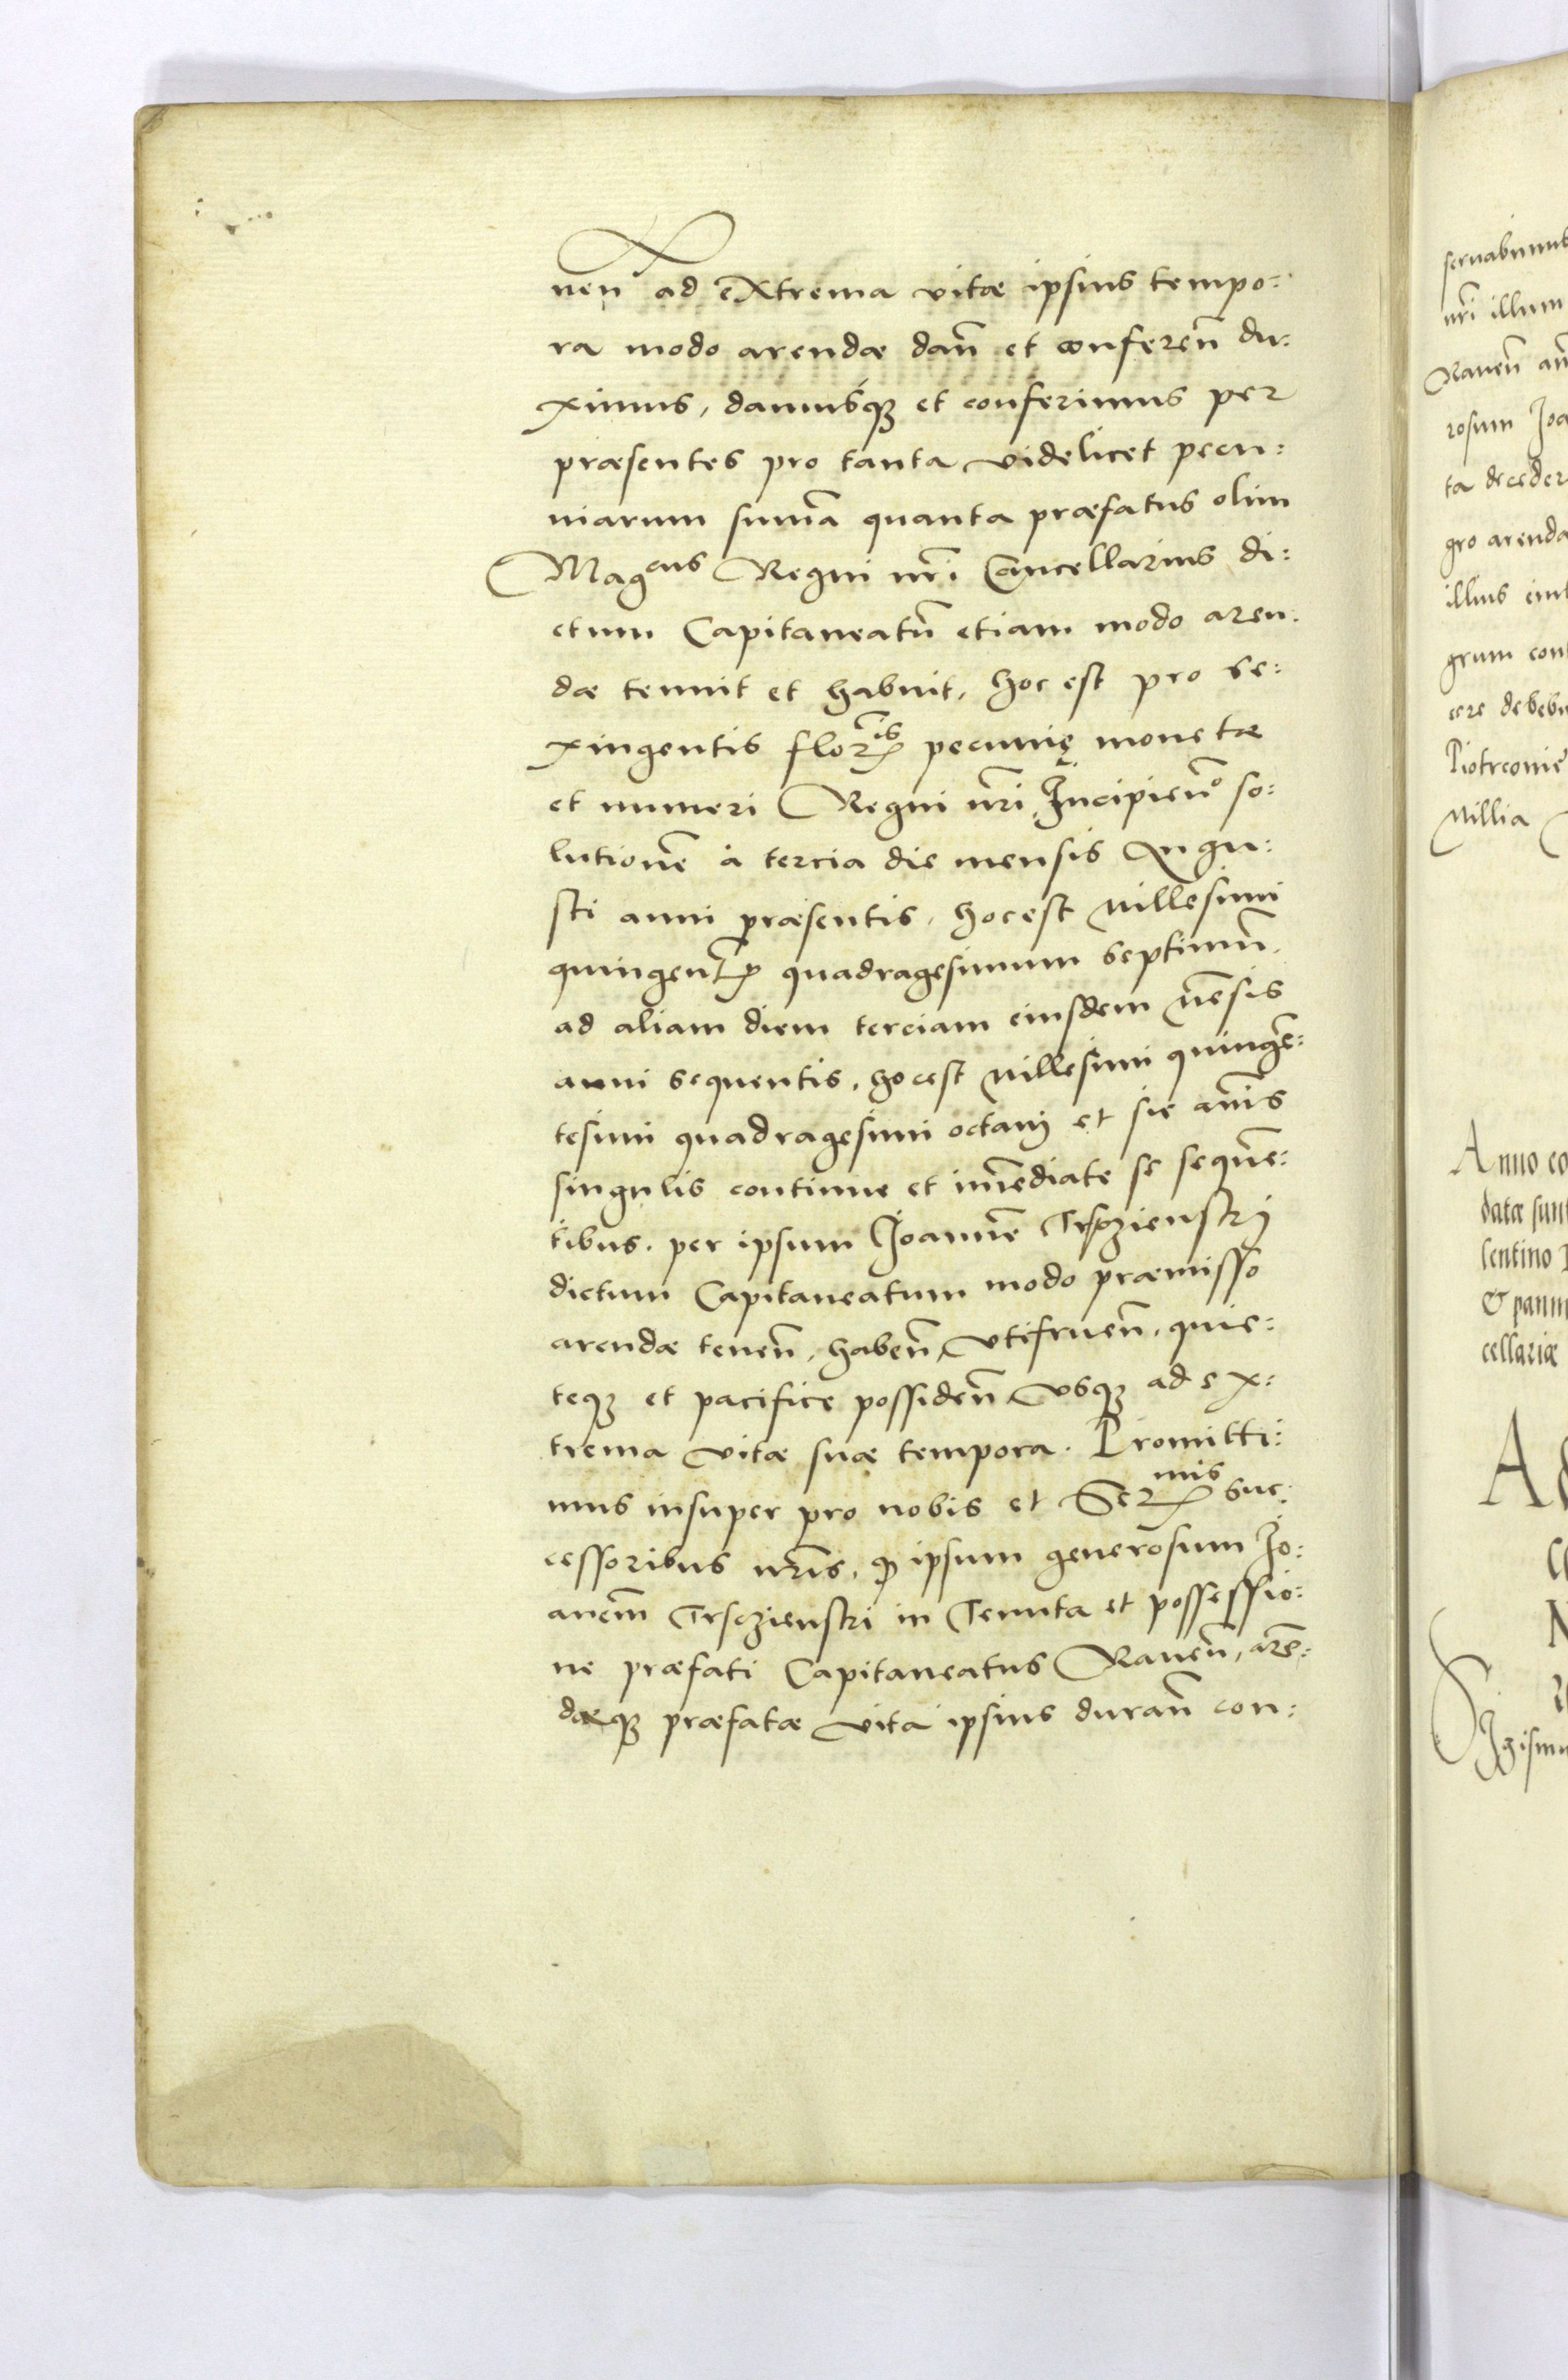 nen̄ ad extrema vitæ ipsius tempo:
ra modo arendæ dan̄ et conferen̄ du:
ximus, damusq́ꝫ et conferimus per
præsentes pro tanta videlicet pecu:
niarum sum̄a quanta præfatus olim
Magcus Regni nr̄i Cancellarius di:
ctum Capitaneatū etiam modo aren:
dæ tenuit et habuit, hoc est pro se:
xingentis florꝭis pecunię monetæ
et numeri Regni nr̄i, Incipien̄o so:
lutionē à tercia die mensis Augu:
sti anni præsentis, hoc est Millesimi
quingentꝭ quadragesimum septimū,
ad aliam diem terciam eiusdem mēsis
anni sequentis, hoc est Millesimi quingē:
tesimi quadragesimi octavi et sic annis
singulis continue et im̄ediate se sequē:
tibus, per ipsum Joannē Trscziensky
dictum Capitaneatum modo præmisso
arendæ tenen̄, haben̄, vtifruen̄, quie:
teqꝫ et pacifice possiden̄ vsqꝫ ad ex:
trema vitæ suæ tempora. Promitti:
mus insuper pro nobis et Sermis suc:
cessoribus nr̄is, ꝙ ipsum generosum Jo:
anem̄ Trsczienski in Tenuta et possessio:
ne præfati Capitaneatus Raven̄, arē:
dæqꝫ præfatæ vita ipsius duran̄ con:
seruabimus
nr̄i illum
Raven̄
rosum Joa
ta deceder
gro arenda
illius
grum con
cere debebu
Piotrconie
Millia
Anno co
datæ sunt
lentino
cellariæ